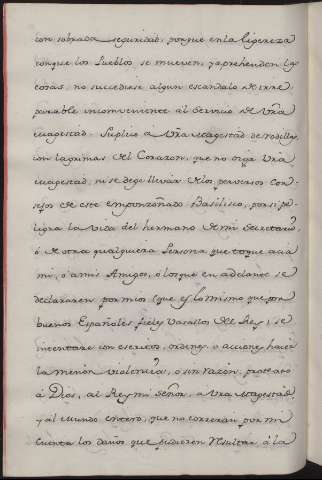 con sobrada seguridad, porque en la ligereza
con que los Pueblos se mueven, y aprehenden las
cosas, no sucediese algun escandalo de irre
parable inconveniente al Servicio de Vra
Magestad. Suplico a Vra Magestad de rodillas,
con lagrimas del Corazon, que no oiga Vra
Magestad, ni se dege llevar de los perversos con=
sejos de este emponzoñado Basilisco, por si pe=
ligra la vida del hermano de mi Secretario,
ó de otra qualquiera Persona que toque acia
mi, ó a mis Amigos, ó los que en adelante se
declararen por mios (que es lo mismo que por
buenos Españoles fieles Vasallos del Rey) se
intentare con escritos, ordenes, o acciones hacer
la menor violencia, ó sin razon, protexto
á Dios, al Rey mi Señor, a Vra Magestad,
y al mundo entero, que no correrán por mi
cuenta los daños que pudieren resultar á la